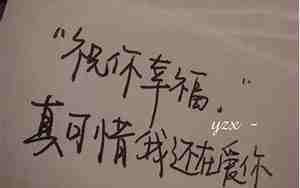 “祝你幸福.”
yzx -
真可惜我还在爱你